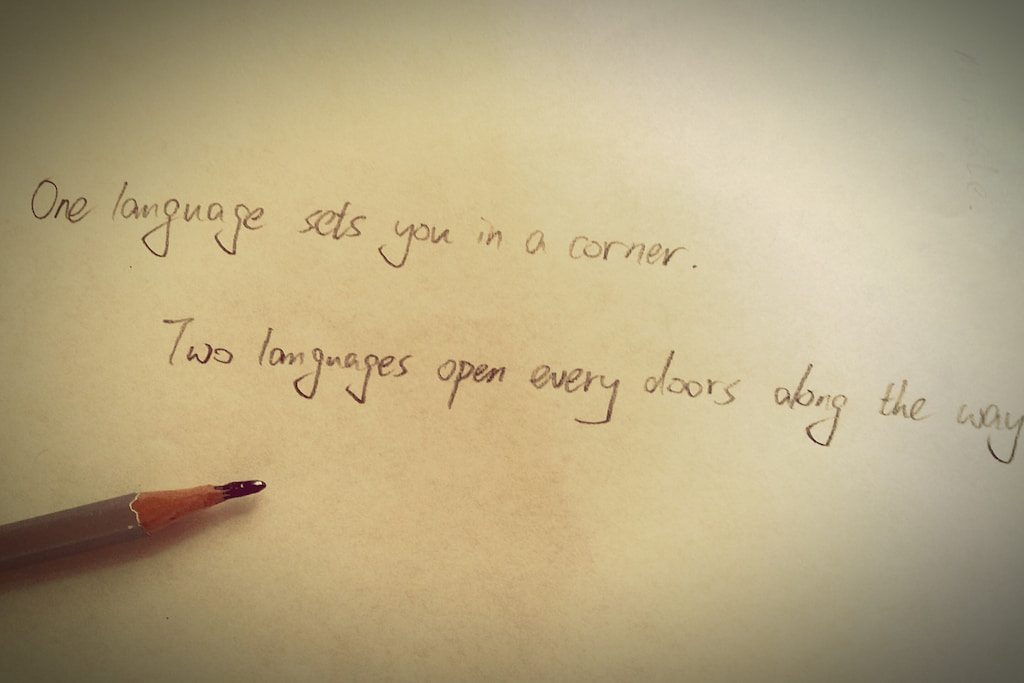 One language sets you in a corner.
Two languages open every doors along the way